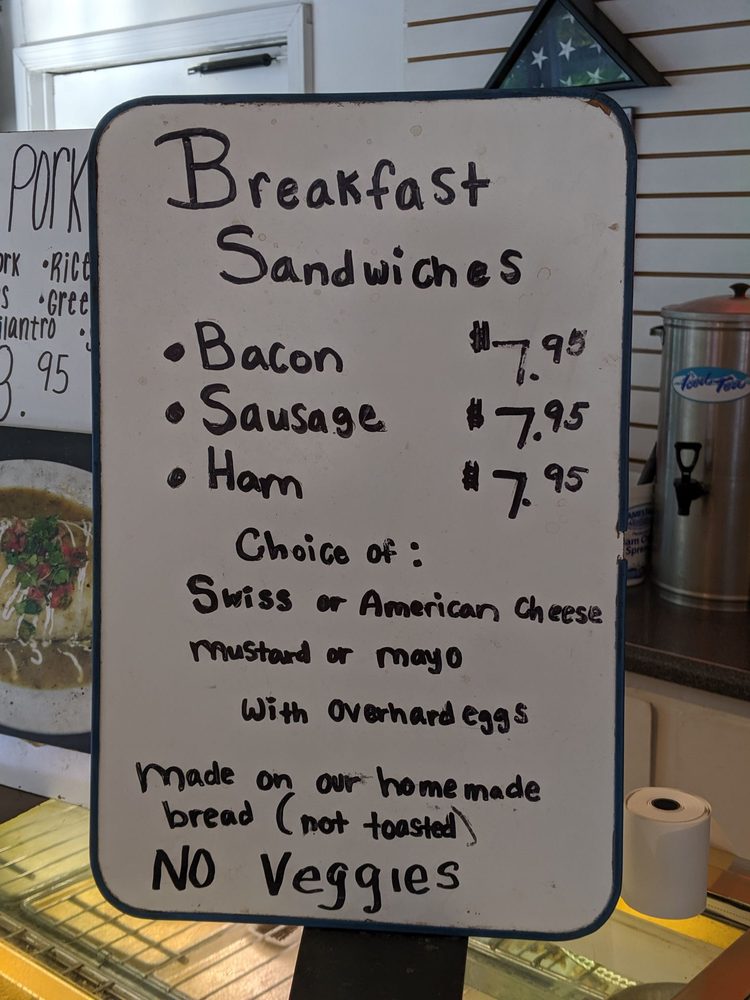 Breakfast
Sandwiches
• Bacon $7.95
• Sausage $7.95
• Ham $7.95
Choice of:
Swiss or American Cheese
Mustard or mayo
With Overhard eggs
Made on our homemade
bread (not toasted)
NO Veggies
Pork
• Rice
.95